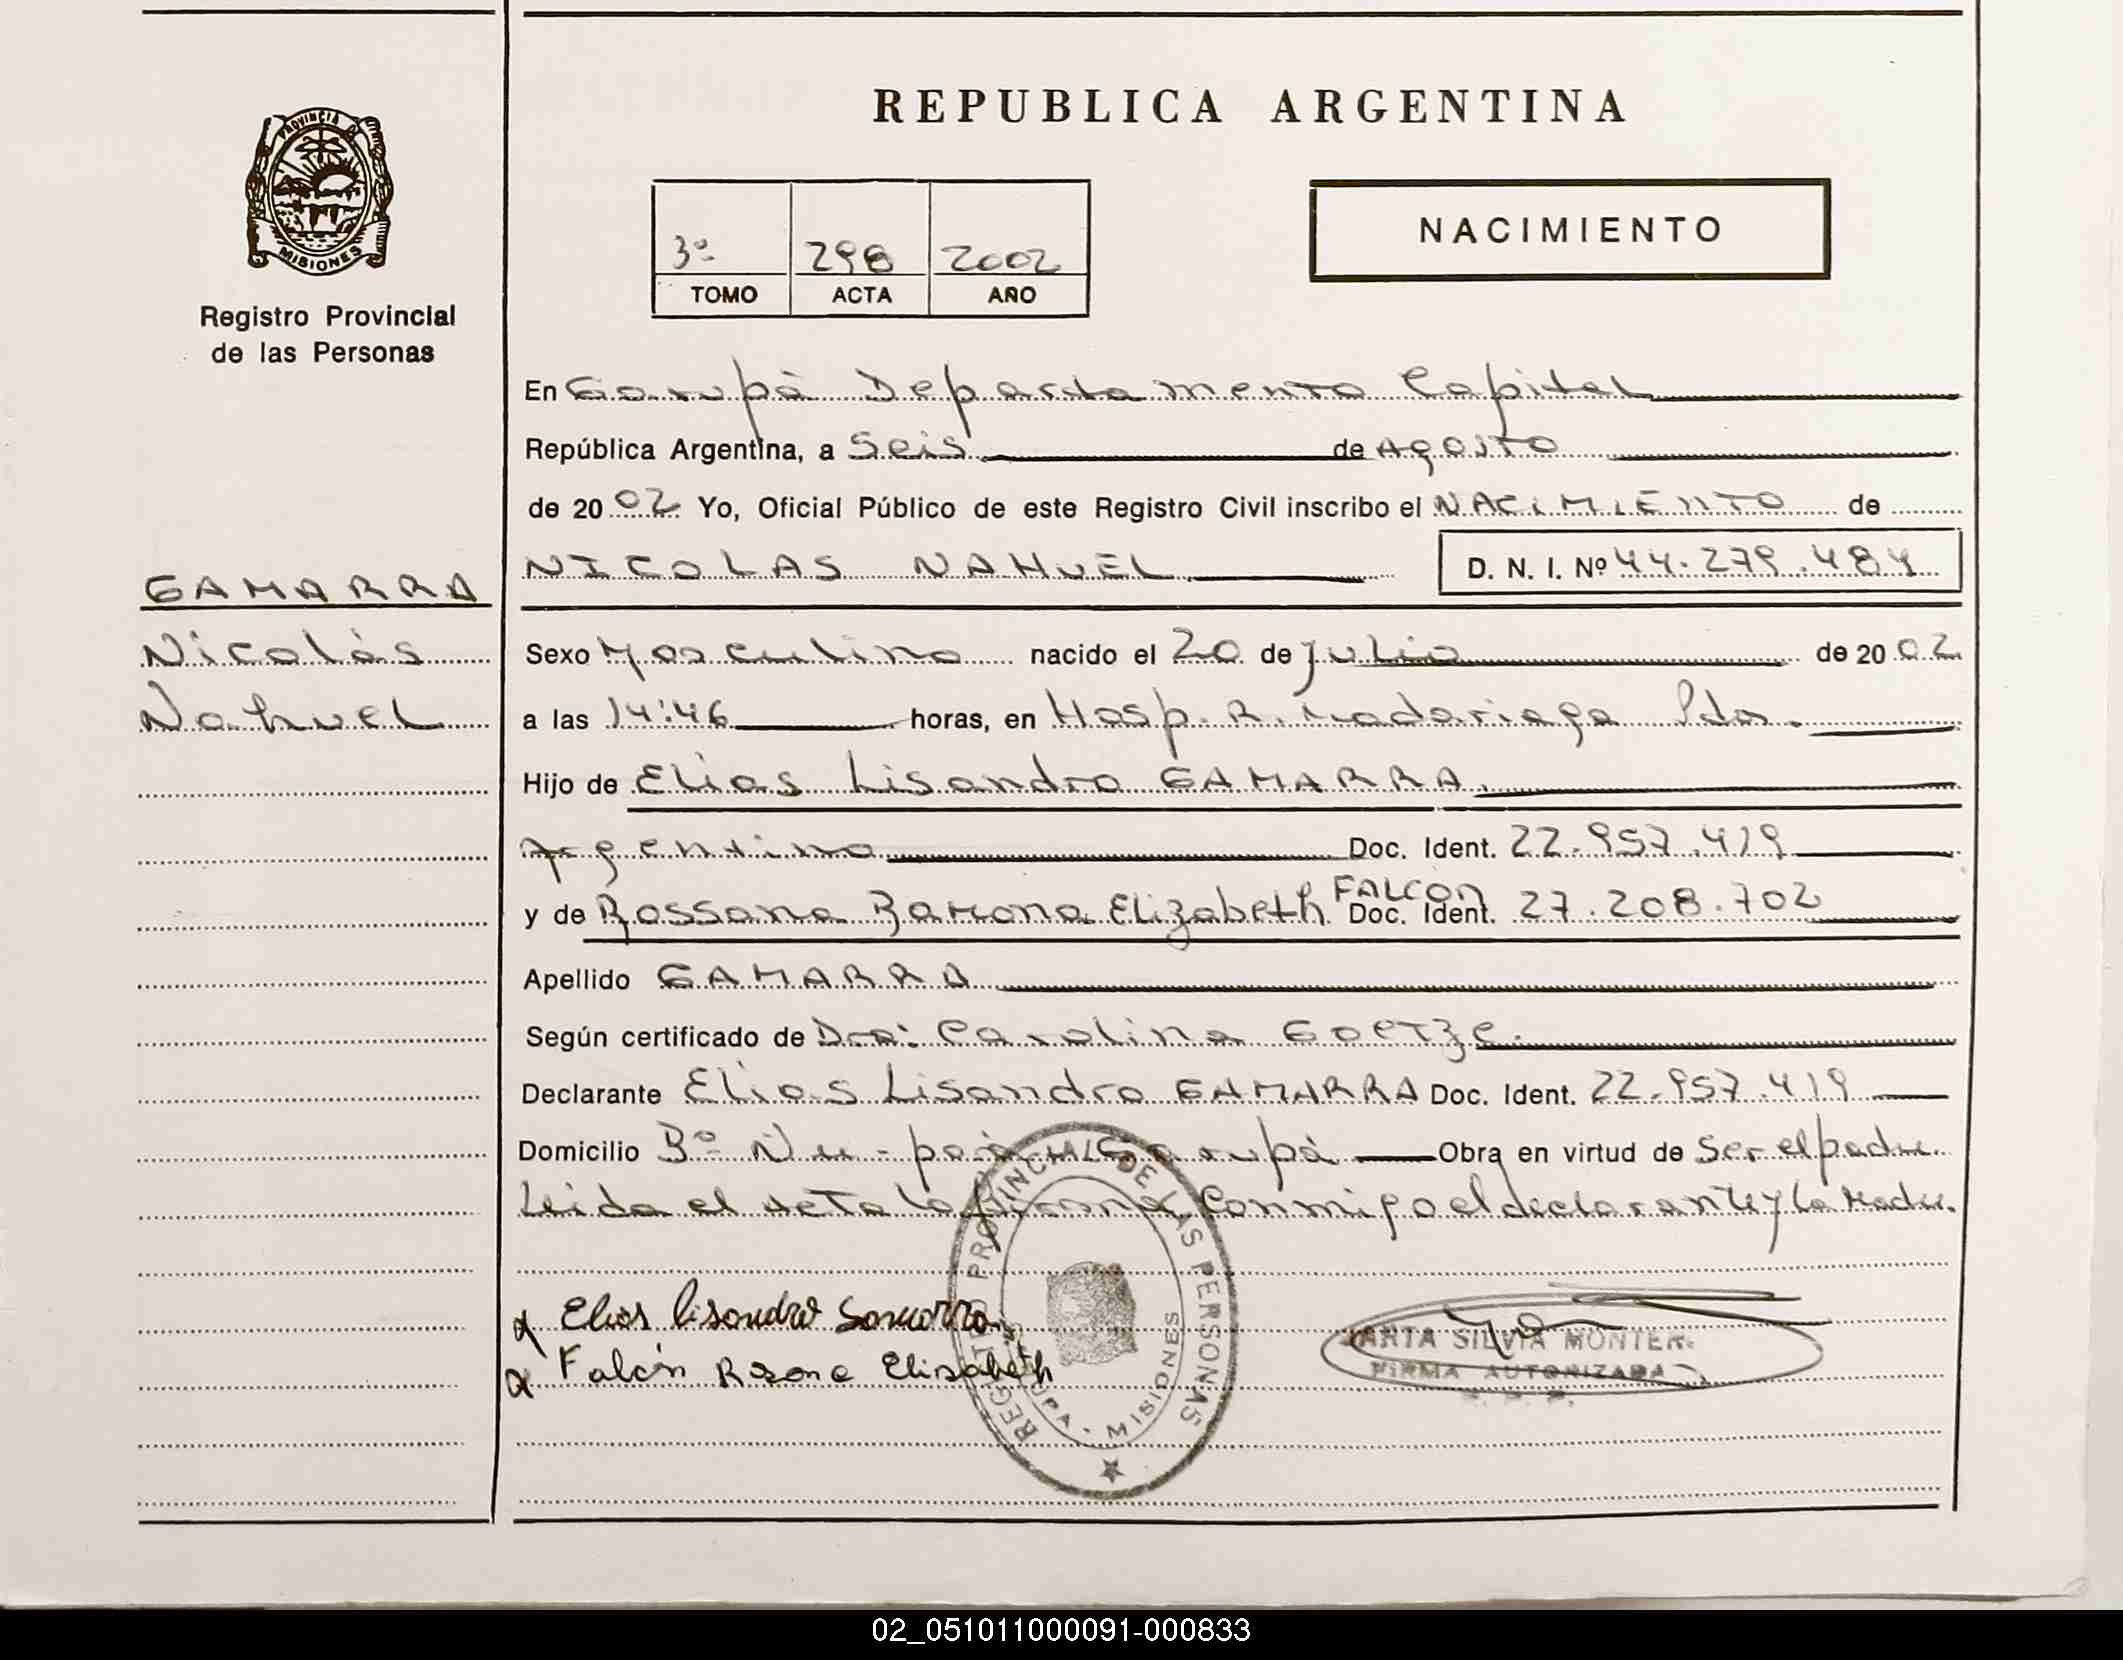 PROVINCIA DE
MISIONES
Registro Provincial
de las Personas
GAMARRA
Nicolás
Nahuel
REPUBLICA ARGENTINA
3º 298 2002
TOMO ACTA AÑO
NACIMIENTO
En Garupá Departamento Capital
República Argentina, a Seis de Agosto
de 2002 Yo, Oficial Público de este Registro Civil inscribo el NACIMIENTO de
NICOLAS NAHUEL D. N. I. Nº 44.279.484
Sexo Masculino nacido el 20 de Julio de 2002
a las 14:46 horas, en Hosp. R. Madariaga Pdas.
Hijo de Elias Lisandro GAMARRA
Argentino Doc. Ident. 22.957.419
y de Rossana Ramona Elizabeth FALCON Doc. Ident. 27.208.702
Apellido GAMARRA
Según certificado de Dra: Carolina Goetze.
Declarante Elias Lisandro GAMARRA Doc. Ident. 22.957.419
Domicilio Bº Ñu-porá Garupá Obra en virtud de Ser el padre.
Leida el acta la firman Conmigo el declarante y la Madre.
Elias lisandro Gamarra
Falcón Elizabeth
REGISTRO PROVINCIAL DE LAS PERSONAS
MISIONES
SILVIA MONTER
FIRMA AUTORIZADA
02_051011000091-000833